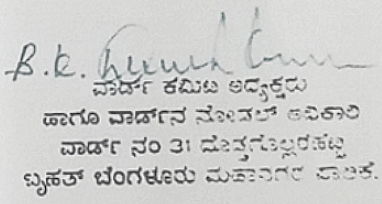 B.K.
ವಾರ್ಡ್ ಕಮಿಟಿ ಅಧ್ಯಕ್ಷರು
ಹಾಗೂ ವಾರ್ಡ್‌ನ ನೋಡಲ್ ಅಧಿಕಾರಿ
ವಾರ್ಡ್ ನಂ 31 ದೊಡ್ಡಗೊಲ್ಲರಹಟ್ಟಿ
ಬೃಹತ್ ಬೆಂಗಳೂರು ಮಹಾನಗರ ಪಾಲಿಕೆ.